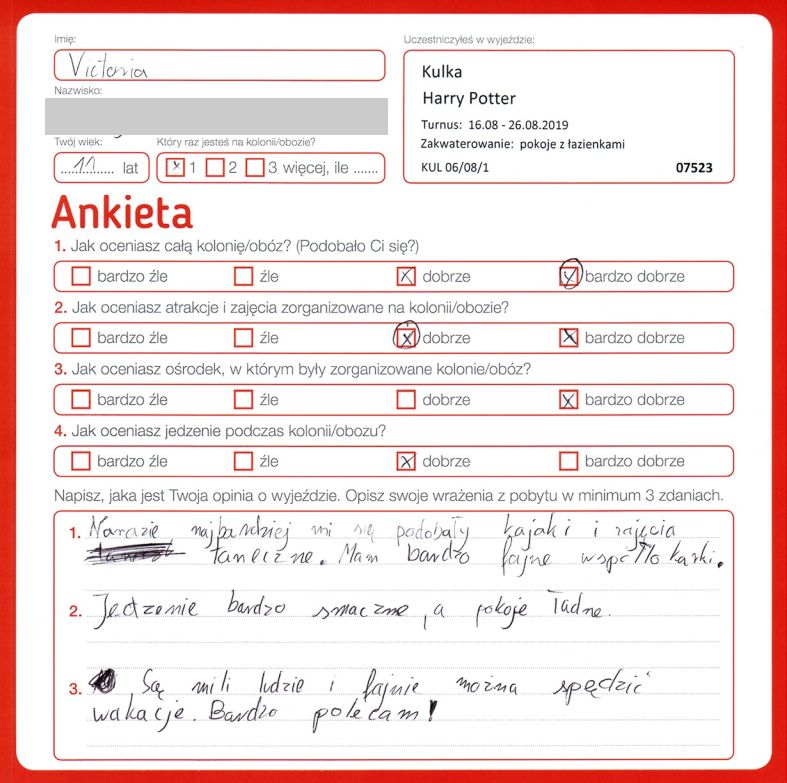 Imię:
Uczestniczyłeś w wyjeździe:
Victoria
Kulka
Harry Potter
Nazwisko:
Turnus: 16.08 - 26.08.2019
Zakwaterowanie: pokoje z łazienkami
KUL 06/08/1 07523
Twój wiek: Który raz jesteś na kolonii/obozie?
11 lat 1 2 3 więcej, ile .......
Ankieta
1. Jak oceniasz całą kolonię/obóz? (Podobało Ci się?)
bardzo źle źle dobrze bardzo dobrze
2. Jak oceniasz atrakcje i zajęcia zorganizowane na kolonii/obozie?
bardzo źle źle dobrze bardzo dobrze
3. Jak oceniasz ośrodek, w którym były zorganizowane kolonie/obóz?
bardzo źle źle dobrze bardzo dobrze
4. Jak oceniasz jedzenie podczas kolonii/obozu?
bardzo źle źle dobrze bardzo dobrze
Napisz, jaka jest Twoja opinia o wyjeździe. Opisz swoje wrażenia z pobytu w minimum 3 zdaniach.
1. Narazie najbardziej mi się podobały kajaki i zajęcia
taneczne. Mam bardzo fajne współlokarki.
2. Jedzenie bardzo smaczne, a pokoje ładne.
3. Są mili ludzie i fajnie można spędzić
wakacje. Bardzo polecam!